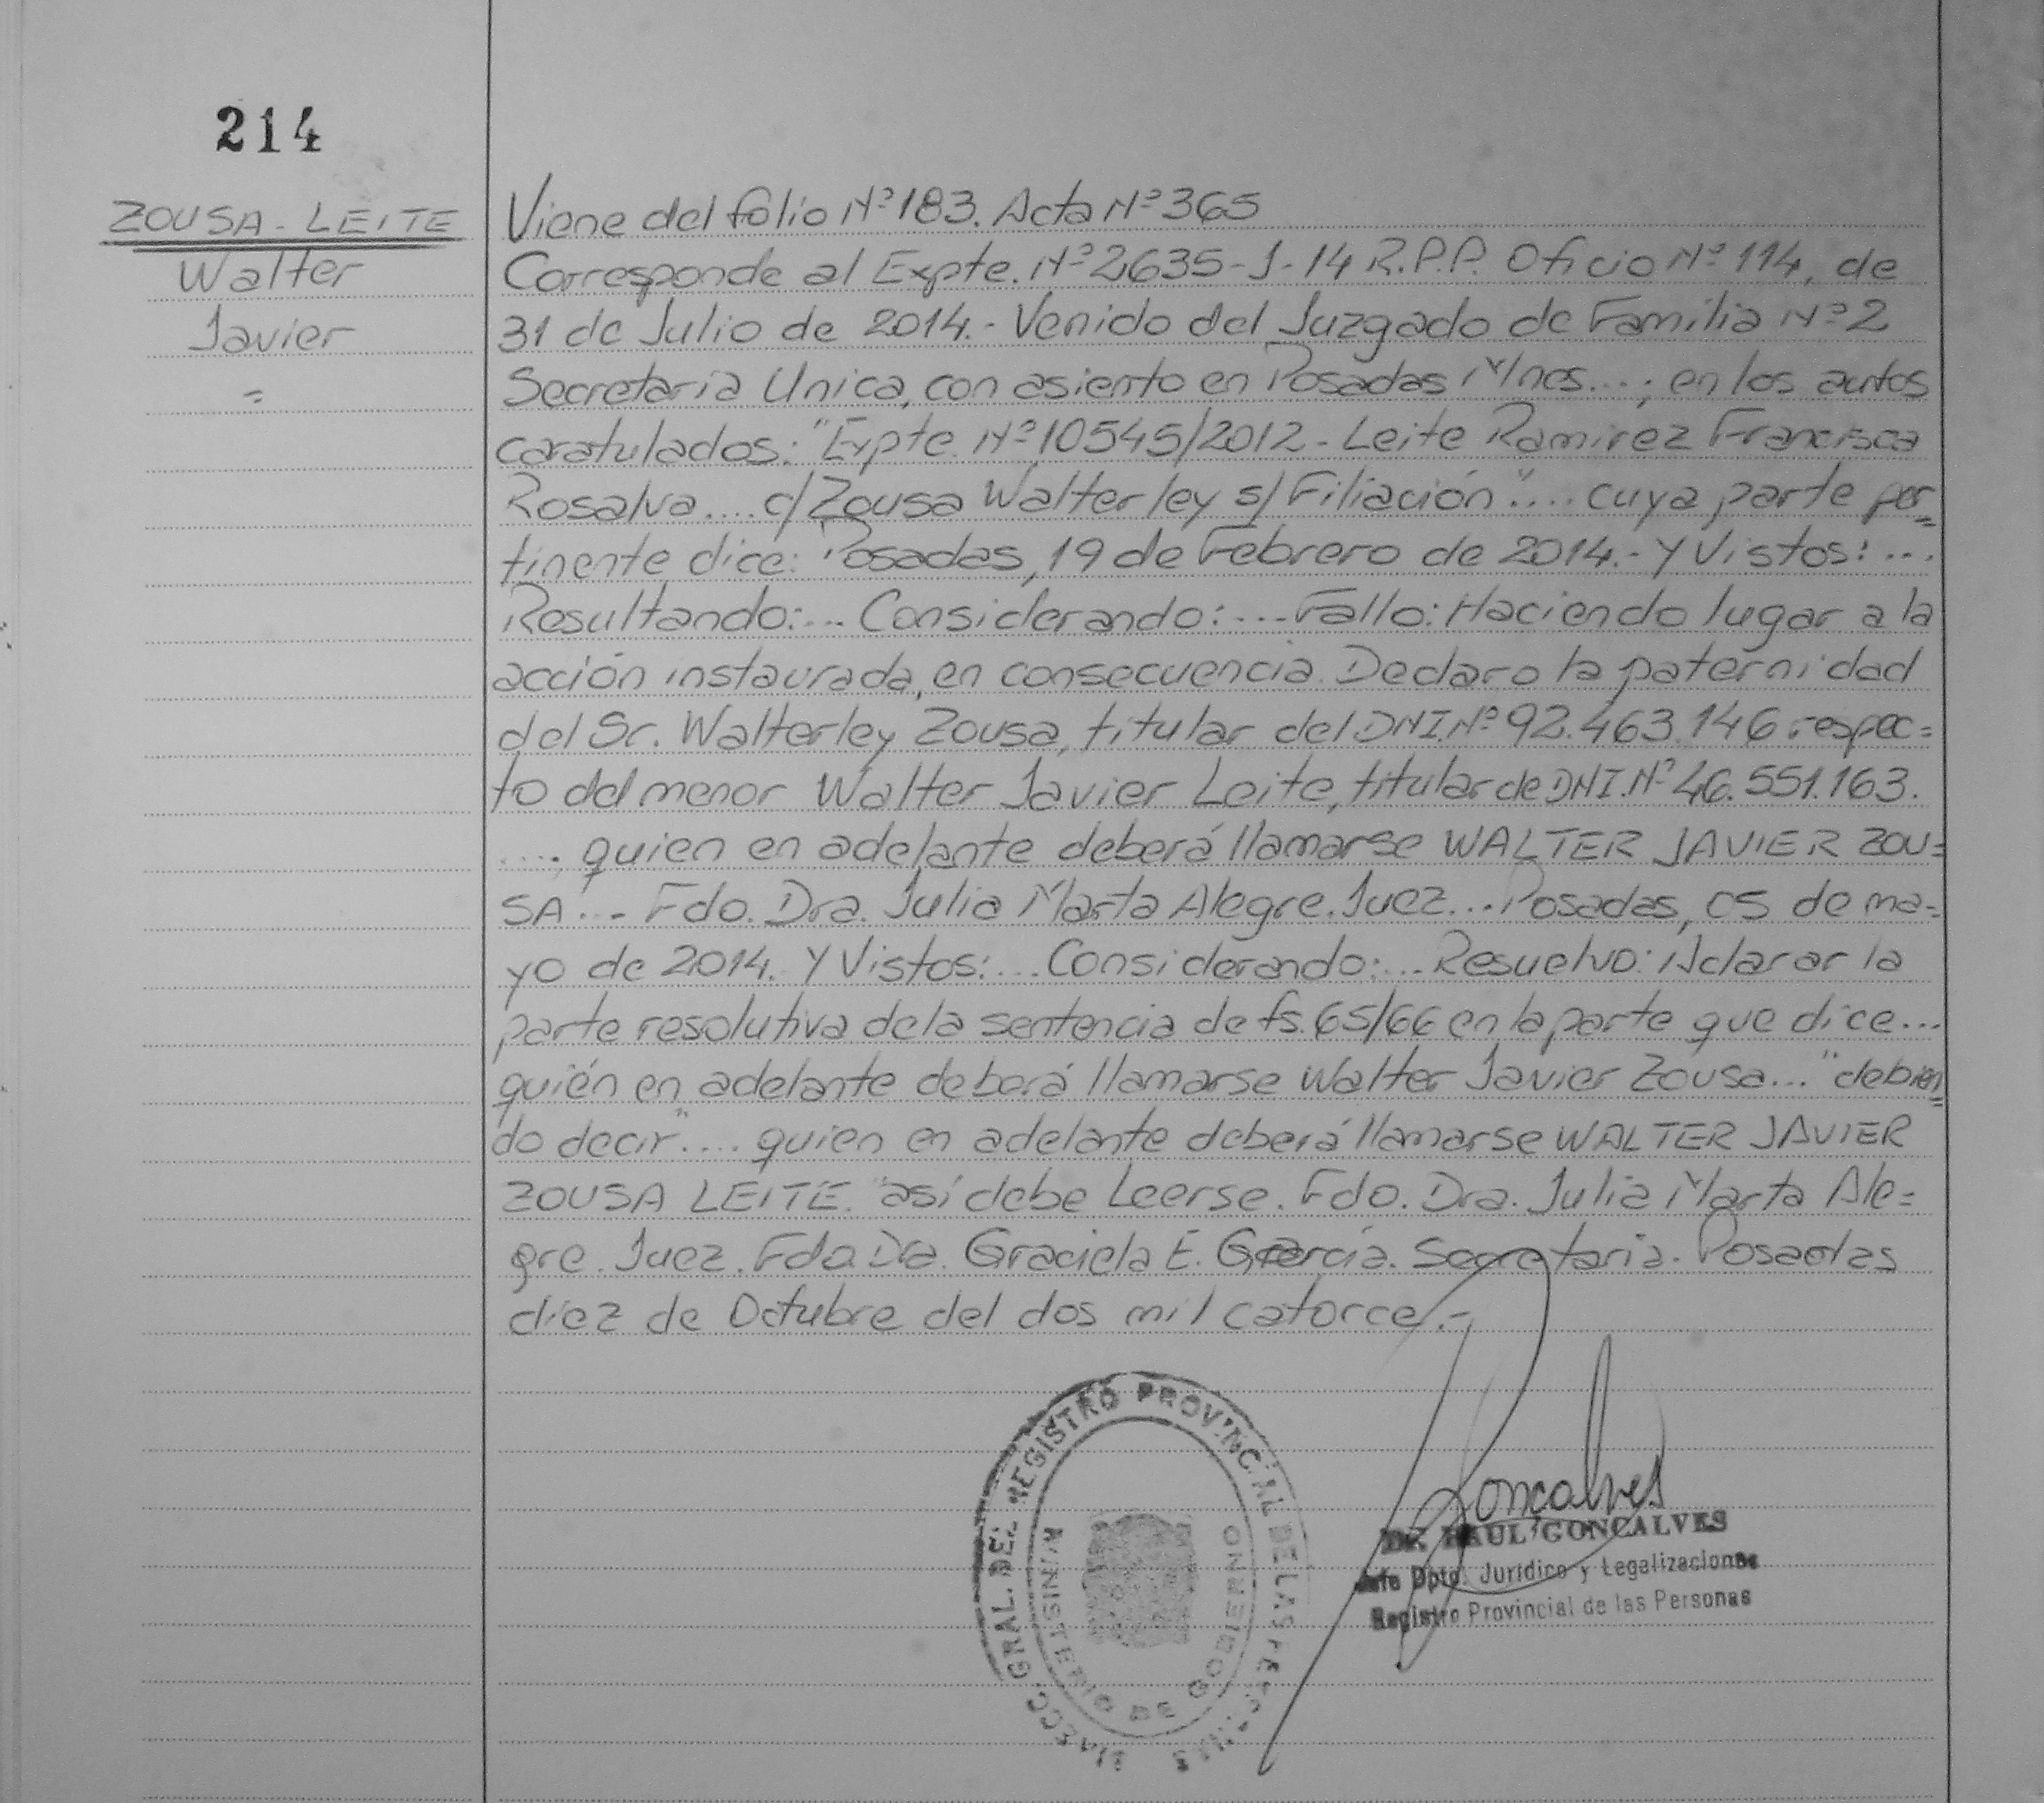 214
ZOUSA-LEITE
Walter
Javier
=
Viene del folio Nº 183. Acta Nº 365
Corresponde al Expte. Nº 2635-J-14 R.P.P. Oficio Nº 114, de
31 de Julio de 2014.- Venido del Juzgado de Familia Nº 2
Secretaría Unica, con asiento en Posadas Mnes...; en los autos
caratulados: "Expte. Nº 10545/2012 - Leite Ramirez Francisca
Rosalva.... c/Zousa Walterley s/Filiación".... cuya parte per=
tinente dice: Posadas, 19 de Febrero de 2014.- Y Vistos:...
Resultando:... Considerando:... Fallo: Haciendo lugar a la
acción instaurada, en consecuencia. Declaro la paternidad
del Sr. Walterley Zousa, titular del DNI. Nº 92.463.146 respec=
to del menor Walter Javier Leite, titular de DNI. Nº 46.551.163.
...., quien en adelante deberá llamarse WALTER JAVIER ZOU=
SA... Fdo. Dra. Julia Marta Alegre. Juez... Posadas, 05 de ma-
yo de 2014. Y Vistos:... Considerando:... Resuelvo: Aclarar la
parte resolutiva de la sentencia de fs. 65/66 en la parte que dice...
quién en adelante deberá llamarse Walter Javier Zousa..." debien=
do decir".... quien en adelante deberá llamarse WALTER JAVIER
ZOUSA LEITE." así debe Leerse. Fdo. Dra. Julia Marta Ale=
gre. Juez. Fdo. Dra. Graciela E. Garcia. Secretaria. Posadas
diez de Octubre del dos mil catorce.-
DIRECC. GRAL. DEL REGISTRO PROVINCIAL DE LAS PERSONAS
MINISTERIO DE GOBIERNO
Goncalves
Dr. RAUL GONCALVES
Jefe Dpto. Jurídico y Legalizaciones
Registro Provincial de las Personas